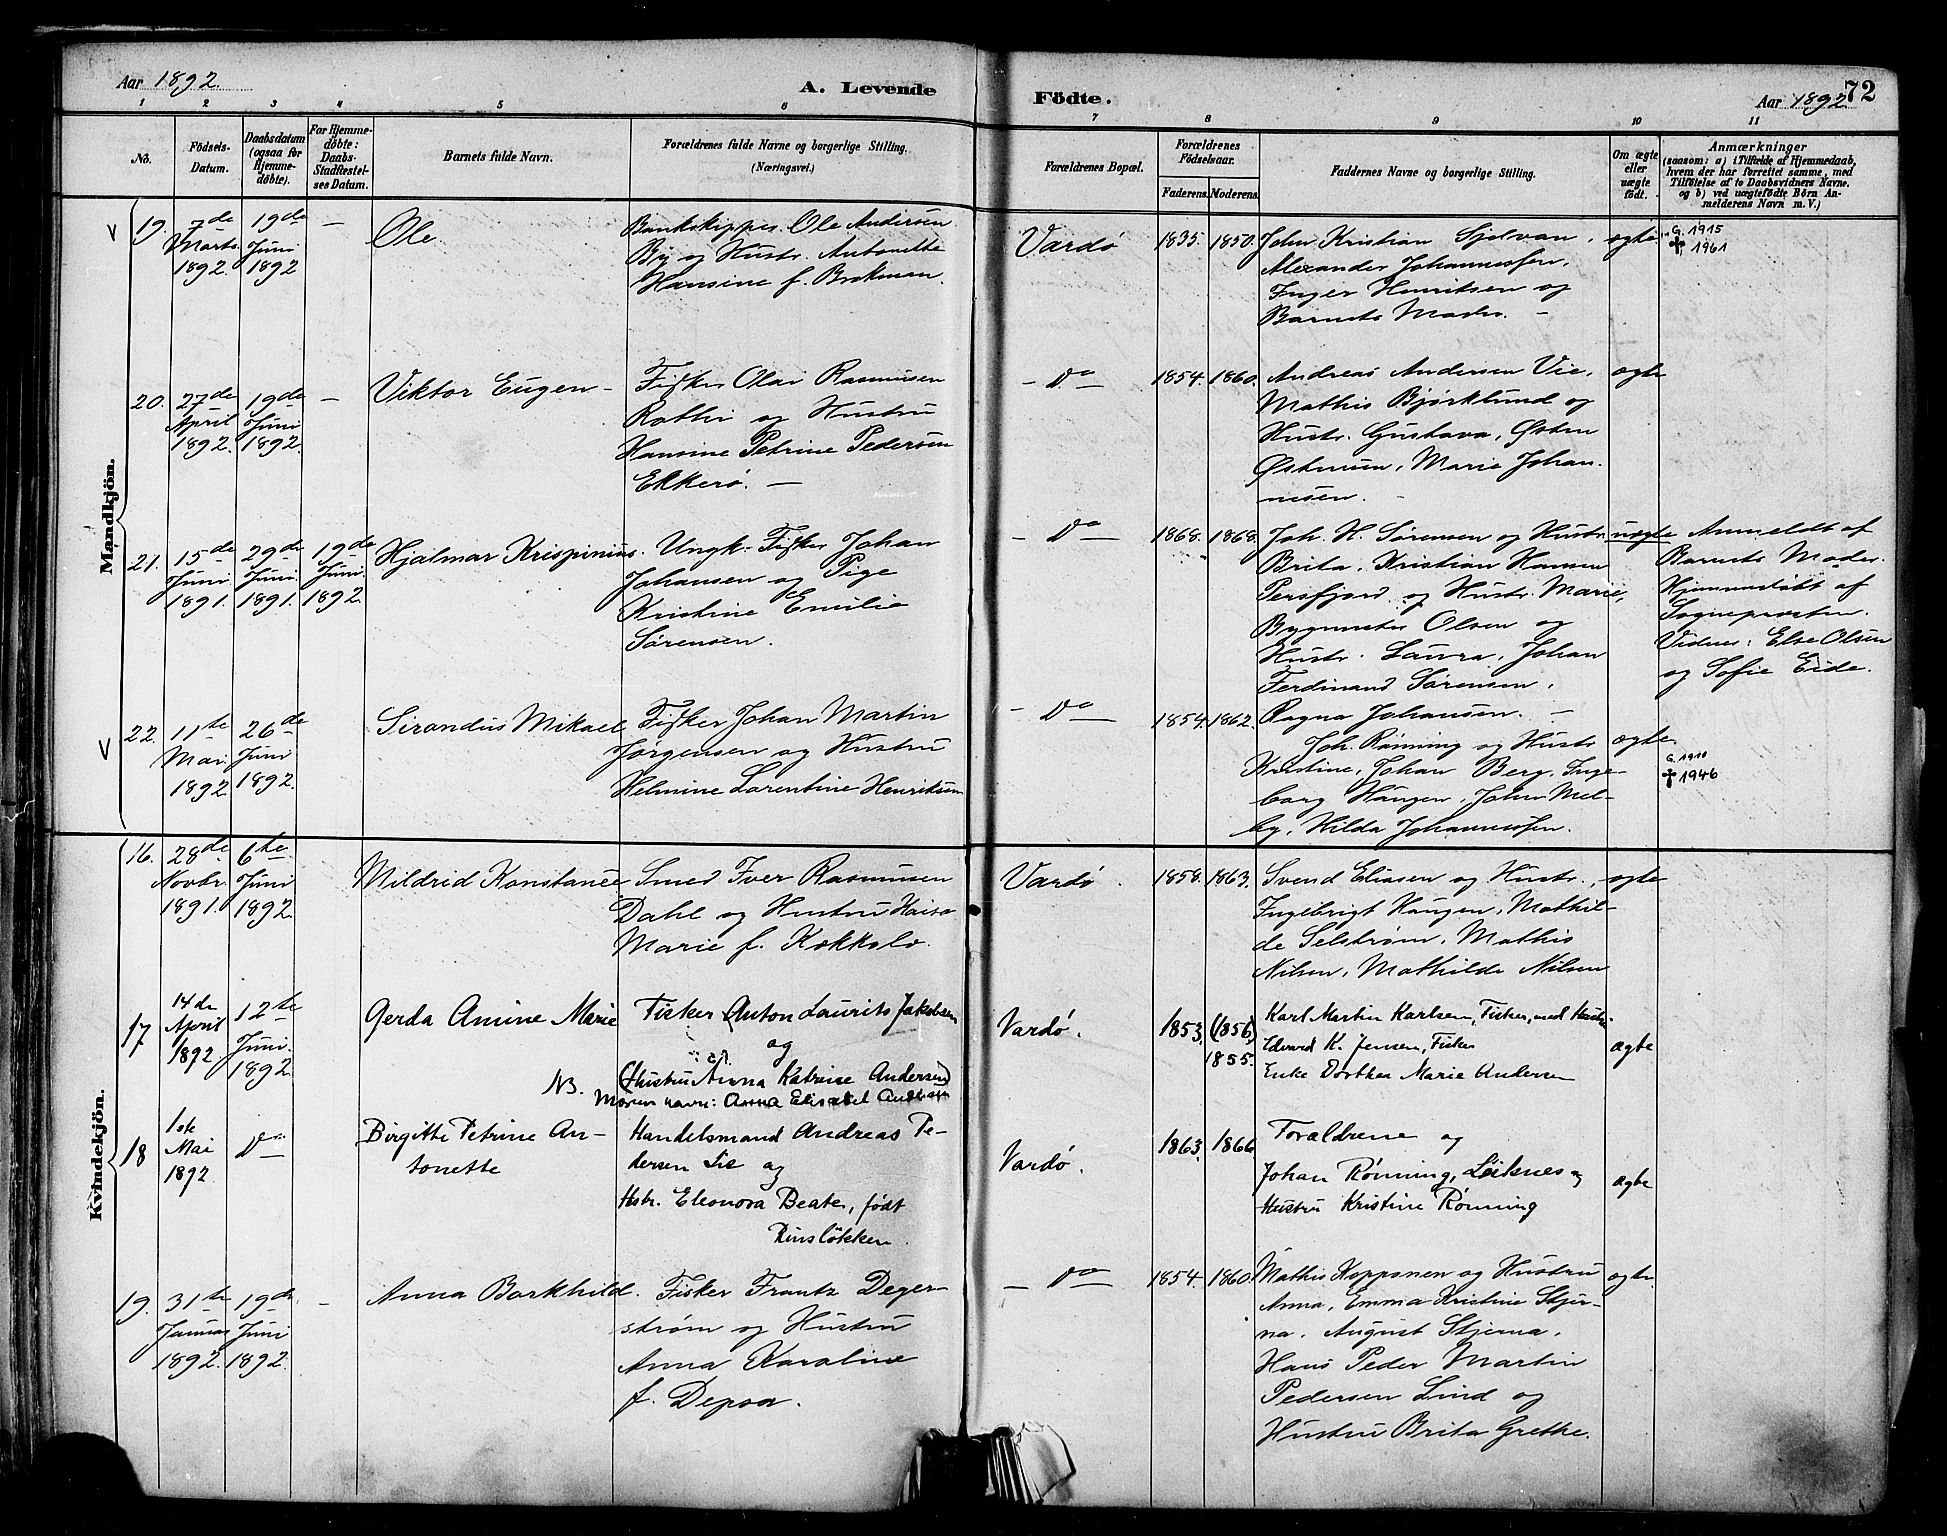 Aar 1892.
A. Levende
Födte.
Aar 1892
72
1 2 3 4 5 6 7 8 9 10 11
No.
Födsels-
Datum.
Daabsdatum
(ogsaa for
Hjemme-
døbte).
For Hjemme-
døbte:
Daabs-
Stadfæstel-
ses Datum.
Barnets fulde Navn.
Forældrenes fulde Navne og borgerlige Stilling.
(Næringsvei.)
Forældrenes Bopæl.
Forældrenes
Födselsaar.
Faderens. Moderens.
Faddernes Navne og borgerlige Stilling.
Om ægte
eller
uægte
født.
Anmærkninger
(saasom: a) i Tilfælde af Hjemmedaab,
hvem der har forrettet samme, med
Tilföielse af to Daabsvidners Navne.
og b) ved uægtefödte Börn An-
melderens Navn m. V.)
Mandkjön.
19.
7de
Marts
1892.
19de
Juni
1892
—
Ole.
Bankskipper Ole Andersen
By og Hustr. Antonette
Hansine f. Brokman.
Vardø
1835.
1850.
John Kristian Sjølvan,
Alexander Johannessen,
Inger Henriksen og
Barnets Moder. —
ægte
G. 1915
† 1961
20.
27de
April
1892.
19de
Juni
1892.
—
Viktor Eugen —
Fisker Olai Rasmusen
og Hustru
Hansine Petrine Pedersen
Ekkerø. —
— Do —
1854.
1860.
Andreas Andersen Vie,
Mathis Bjørklund og
Hustr. Gustava, Østen
Østensen, Marie Johan-
nesen. —
ægte
21.
15de
Juni
1891.
29de
Juni
1891.
19de
Juni
1892.
Hjalmar Krispinius.
Ungk. Fisker Johan
Johansen og Pige
Kristine Emilie
Sørensen.
— Do —
1868.
1868.
Joh. H. Sørensen og Hustr.
Brita, Kristian Hansen
Persfjord og Hustr. Marie,
Bygmester Olsen og
Hustr. Laura, Johan
Ferdinand Sørensen,
Ragna Johansen. —
uægte
Anmeldt af
Barnets Moder.
Hjemmedøbt af
Sogneprosten.
Vidner: Else Olsen
og Sofie Eide.
22.
11te
Mai
1892
26de
Juni
1892.
Sirandus Mikael
Fisker Johan Martin
Jørgensen og Hustru
Helmine Lorentine Henriksen
— Do —
1854.
1862.
Joh. Rønning og Hustr
Kristine, Johan Berg, Inge-
borg Haugen, John Mel-
by, Hilda Johannessen.
ægte.
G. 1910
† 1946
Kvindekjön.
16.
28de
Novbr.
1891.
6te
Juni
1892.
Mildrid Konstance
Smed Iver Rasmusen
Dahl og Hustru Kaisa
Marie f. Kokkolo.
Vardø.
1858.
1863.
Svend Eliasen og Hustr.,
Ingebrigt Haugen, Mathil-
de Selstrøm, Mathis
Nilsen, Mathilde Nilsen
ægte
17
14de
April
1892
12te
Juni
1892
Gerda Amine Marie
Fisker Anton Laurits Jakobsen
og
(Hustru Anna Katrine Andersen)
NB. Moren navn: Anna Elisabet Andersen
Vardø.
1853.
(1856)
1855.
Karl Martin Karlsen, Fisker, med Hustru
Edvard K. Jensen, Fisker
Enke Dorthea Marie Andersen
ægte
18
1ste
Mai
1892
Do
Birgitte Petrine An-
tonette
Handelsmand Andreas Pe-
dersen Lie og
Hstr. Eleonora Beate, født
Rinsløkken.
Vardø.
1863.
1866
Forældrene og
Johan Rønning, Leiknes og
Hustru Kristine Rønning
ægte
19.
31te
Januar
1892.
19de
Juni
1892.
—
Anna Borkhild.
Fisker Frantz Deger-
strøm og Hustru
Anna Karoline
f. Depoa.
— Do —
1854.
1860.
Mathis Kopponen og Hustru
Anna, Emma Kristine Stjer-
na, August Stjerna,
Hans Peder Martin
Pedersen Lind og
Hustru Brita Grethe.
ægte.